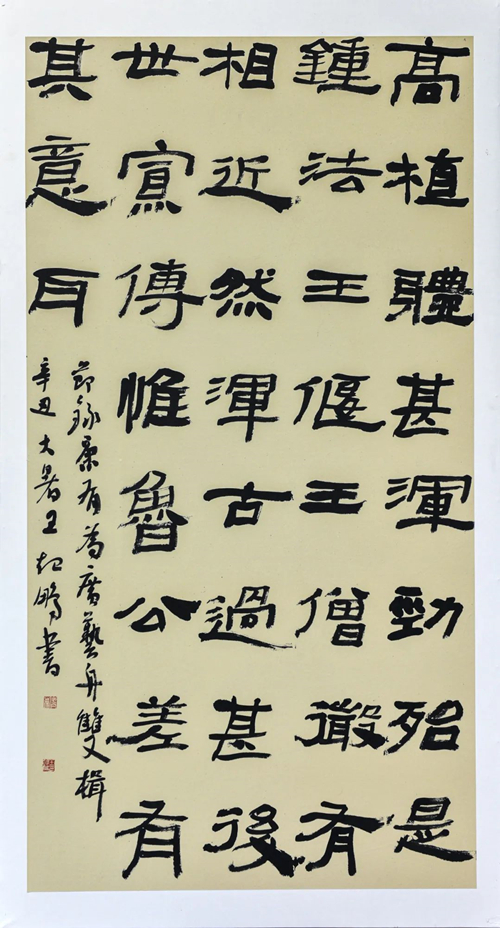 高植軆甚渾勁殆是
鍾法王偃王僧微有
相近然渾古過甚後
世寡傳惟魯公差有
其意耳
節錄康有為廣藝舟雙楫
辛丑大暑王起鵬書